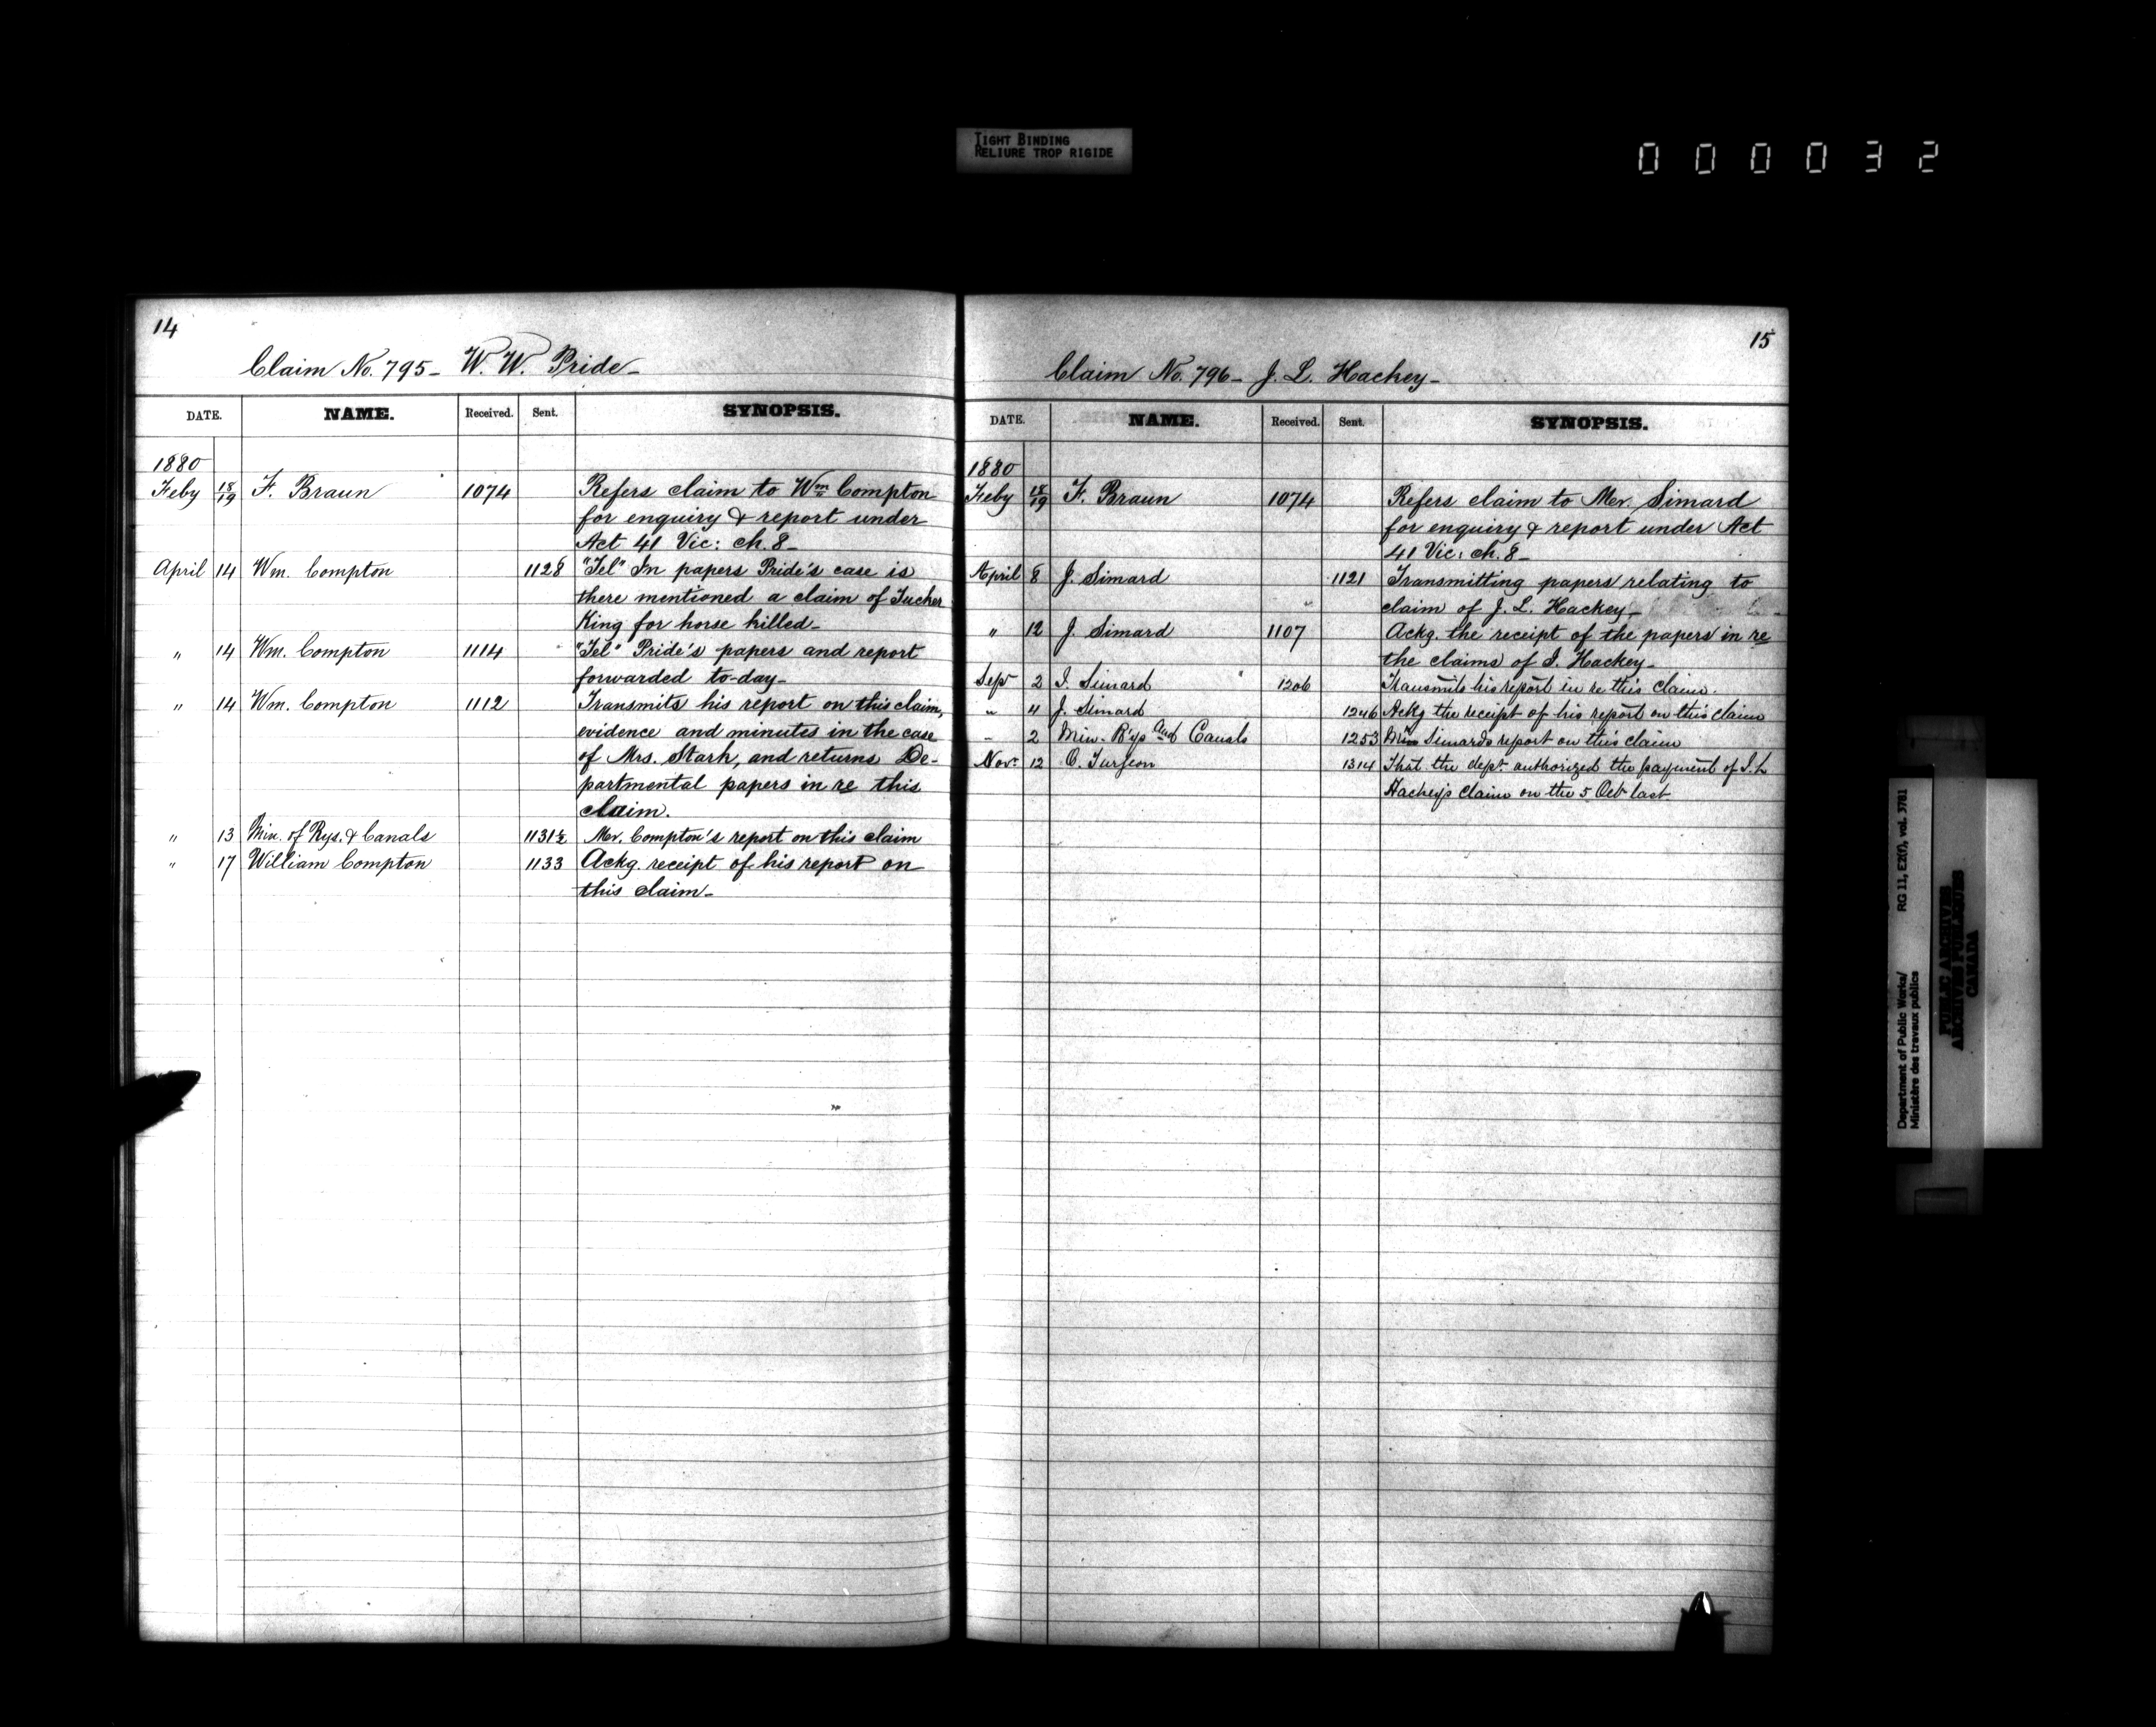 TIGHT BINDING
RELIURE TROP RIGIDE
000032
14
Claim No. 795 - W. W. Pride -
DATE. NAME. Received. Sent. SYNOPSIS.
1880
Feby 18/19 F. Braun 1074 Refers claim to Wm Compton
for enquiry & report under
Act 41 Vic: ch. 8 -
April 14 Wm. Compton 1128 "Tel" In papers Pride's case is
there mentioned a claim of Tucker
King for horse killed -
" 14 Wm. Compton 1114 "Tel" Pride's papers and report
forwarded to-day -
" 14 Wm. Compton 1112 Transmits his report on this claim,
evidence and minutes in the case
of Mrs. Stark, and returns De-
partmental papers in re this
claim.
" 13 Min. of Rys. & Canals 1131½ Mr. Compton's report on this claim
" 17 William Compton 1133 Ackg. receipt of his report on
this claim -
15
Claim No. 796 - J. L. Hackey -
DATE. NAME. Received. Sent. SYNOPSIS.
1880
Feby 18/19 F. Braun 1074 Refers claim to Mr. Simard
for enquiry & report under Act
41 Vic: ch. 8 -
April 8 J. Simard 1121 Transmitting papers relating to
claim of J. L. Hackey -
" 12 J. Simard 1107 Ackg. the receipt of the papers in re
the claims of J. Hackey -
Sep 2 J. Simard 1206 Transmits his report in re this claim.
" 4 J. Simard 1246 Ackg the receipt of his report on this claim
" 2 Min. R'ys and Canals 1253 Simards report on this claim
Nov. 12 O. Turgeon 1314 That the dept. authorized the payment of J. L
Hackey's claim on the 5 Oct last
Department of Public Works/
Ministère des travaux publics
RG 11, E2(f), vol. 3781
PUBLIC ARCHIVES
ARCHIVES PUBLIQUES
CANADA